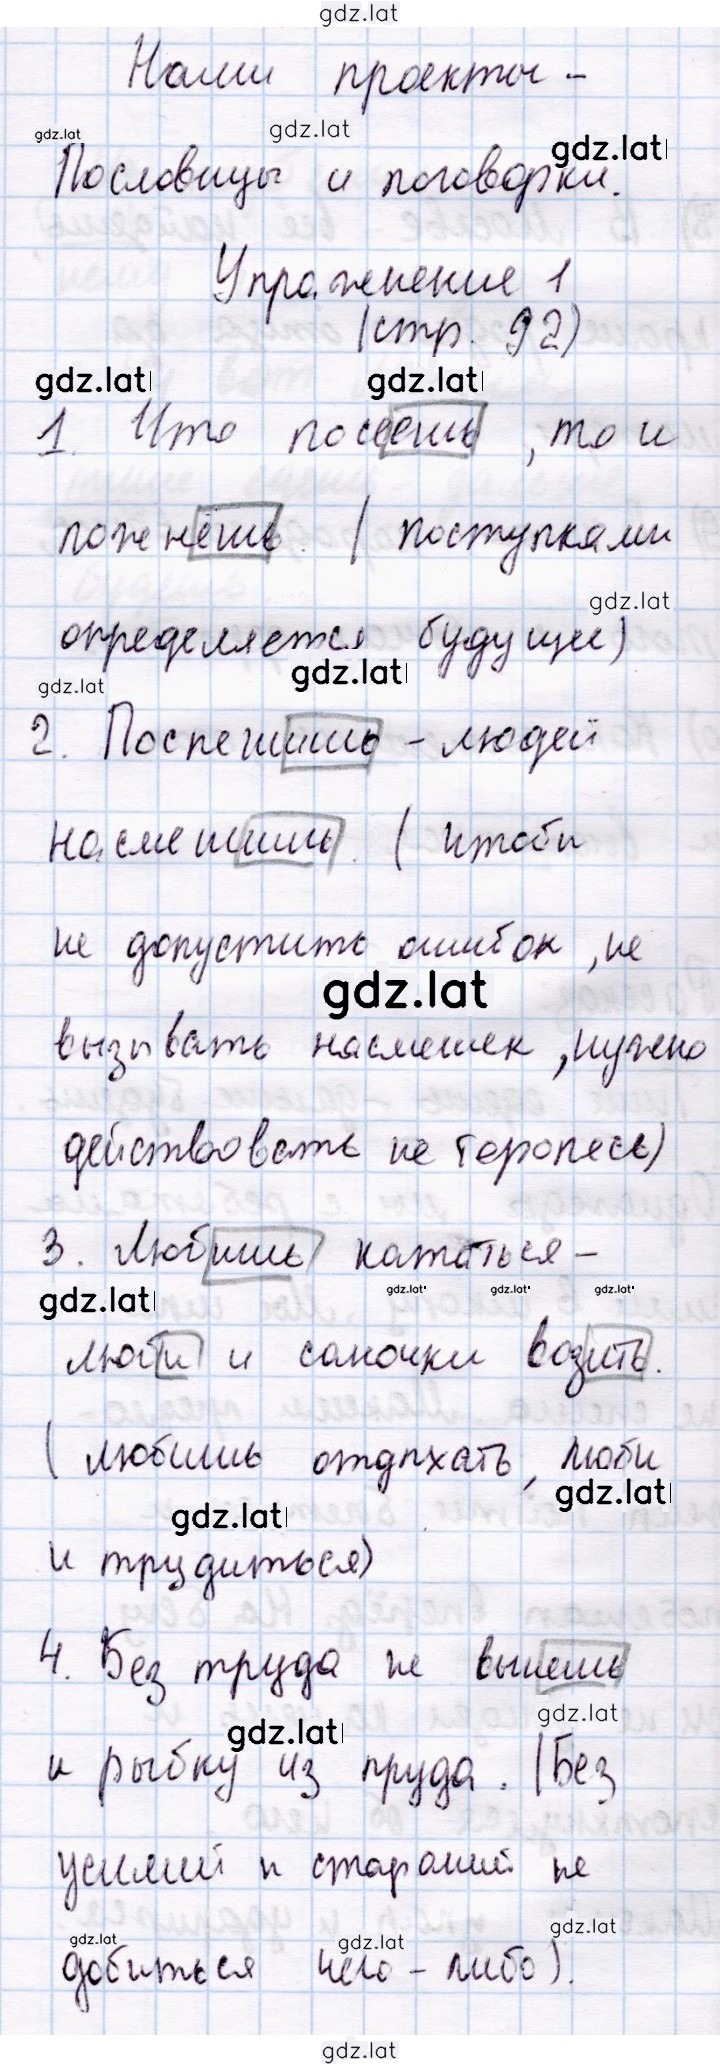 gdz.lat
Наши проекты -
gdz.lat gdz.lat gdz.lat
Пословицы и поговорки.
Упражнение 1
(стр. 92)
gdz.lat gdz.lat
1. Что посеешь, то и
пожнёшь. (поступками
gdz.lat
определяется будущее)
gdz.lat gdz.lat
2. Поспешишь - людей
насмешишь. (чтобы
не допустить ошибок, не
gdz.lat
вызывать насмешек, нужно
действовать не торопясь)
3. Любишь кататься -
gdz.lat gdz.lat gdz.lat gdz.lat
люби и саночки возить.
(любишь отдыхать, люби
gdz.lat gdz.lat
и трудиться)
4. Без труда не вынешь
gdz.lat gdz.lat
и рыбку из пруда. (Без
усилий и стараний не
gdz.lat gdz.lat gdz.lat
добиться чего-либо).
gdz.lat